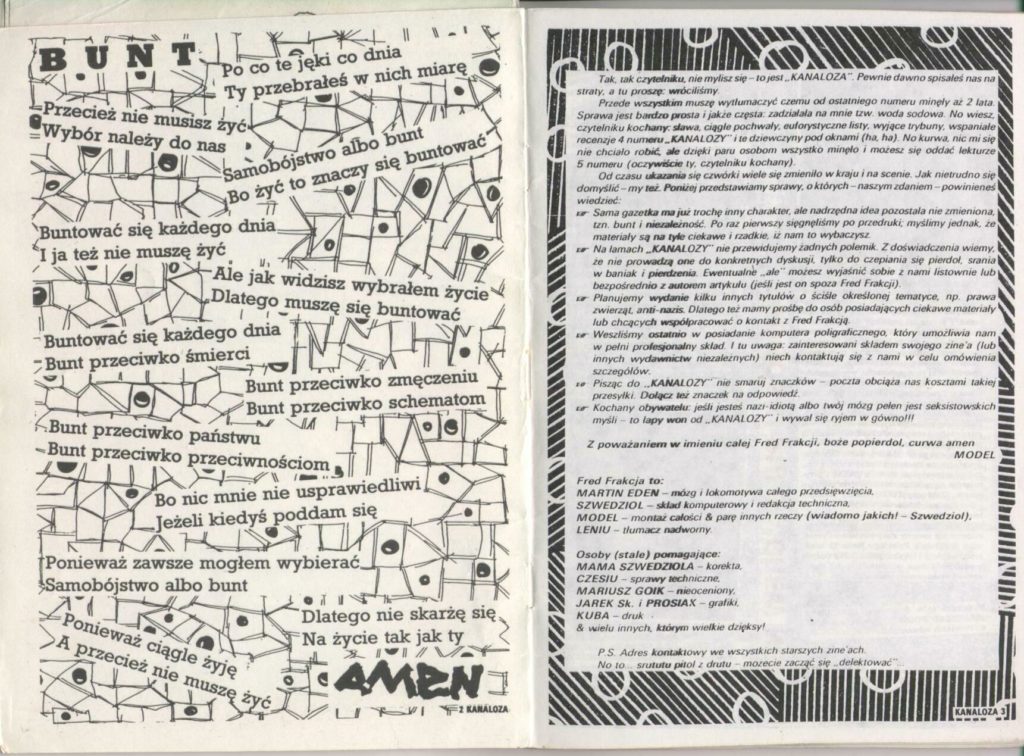 BUNT
Po co te jęki co dnia
Ty przebrałeś w nich miarę
Przecież nie musisz żyć
Wybór należy do nas
Samobójstwo albo bunt
Bo żyć to znaczy się buntować
Buntować się każdego dnia
I ja też nie muszę żyć
Ale jak widzisz wybrałem życie
Dlatego muszę się buntować
Buntować się każdego dnia
Bunt przeciwko śmierci
Bunt przeciwko zmęczeniu
Bunt przeciwko schematom
Bunt przeciwko państwu
Bunt przeciwko przeciwnościom
Bo nic mnie nie usprawiedliwi
Jeżeli kiedyś poddam się
Ponieważ zawsze mogłem wybierać
Samobójstwo albo bunt
Dlatego nie skarżę się
Na życie tak jak ty
Ponieważ ciągle żyję
A przecież nie muszę żyć
AMEN
2 KANALOZA
Tak, tak czytelniku, nie mylisz się – to jest „KANALOZA". Pewnie dawno spisałeś nas na
straty, a tu proszę: wróciliśmy.
Przede wszystkim muszę wytłumaczyć czemu od ostatniego numeru minęły aż 2 lata.
Sprawa jest bardzo prosta i jakże częsta: zadziałała na mnie tzw. woda sodowa. No wiesz,
czytelniku kochany: sława, ciągle pochwały, euforystyczne listy, wyjące trybuny, wspaniałe
recenzje 4 numeru „KANALOZY" i te dziewczyny pod oknami (ha, ha). No kurwa, nic mi się
nie chciało robić, ale dzięki paru osobom wszystko minęło i możesz się oddać lekturze
5 numeru (oczywiście ty, czytelniku kochany).
Od czasu ukazania się czwórki wiele się zmieniło w kraju i na scenie. Jak nietrudno się
domyślić – my też. Poniżej przedstawiamy sprawy, o których – naszym zdaniem – powinieneś
wiedzieć:
☞ Sama gazetka ma już trochę inny charakter, ale nadrzędna idea pozostała nie zmieniona,
tzn. bunt i niezależność. Po raz pierwszy sięgnęliśmy po przedruki; myślimy jednak, że
materiały są na tyle ciekawe i rzadkie, iż nam to wybaczysz.
☞ Na łamach „KANALOZY" nie przewidujemy żadnych polemik. Z doświadczenia wiemy,
że nie prowadzą one do konkretnych dyskusji, tylko do czepiania się pierdoł, srania
w baniak i pierdzenia. Ewentualne „ale" możesz wyjaśnić sobie z nami listownie lub
bezpośrednio z autorem artykułu (jeśli jest on spoza Fred Frakcji).
☞ Planujemy wydanie kilku innych tytułów o ściśle określonej tematyce, np. prawa
zwierząt, anti-nazis. Dlatego też mamy prośbę do osób posiadających ciekawe materiały
lub chcących współpracować o kontakt z Fred Frakcją.
☞ Weszliśmy ostatnio w posiadanie komputera poligraficznego, który umożliwia nam
w pełni profesjonalny skład. I tu uwaga: zainteresowani składem swojego zine'a (lub
innych wydawnictw niezależnych) niech kontaktują się z nami w celu omówienia
szczegółów.
☞ Pisząc do „KANALOZY" nie smaruj znaczków – poczta obciąża nas kosztami takiej
przesyłki. Dołącz też znaczek na odpowiedź.
☞ Kochany obywatelu: jeśli jesteś nazi-idiotą albo twój mózg pełen jest seksistowskich
myśli – to łapy won od „KANALOZY" i wywal się ryjem w gówno!!!
Z poważaniem w imieniu całej Fred Frakcji, boże popierdol, curwa amen
MODEL
Fred Frakcja to:
MARTIN EDEN – mózg i lokomotywa całego przedsięwzięcia,
SZWEDZIOL – skład komputerowy i redakcja techniczna,
MODEL – montaż całości & parę innych rzeczy (wiadomo jakich! – Szwedziol),
LENIU – tłumacz nadworny.
Osoby (stale) pomagające:
MAMA SZWEDZIOLA – korekta,
CZESIU – sprawy techniczne,
MARIUSZ GOIK – nieoceniony,
JAREK Sk. i PROSIAX – grafiki,
KUBA – druk
& wielu innych, którym wielkie dzięksy!
P.S. Adres kontaktowy we wszystkich starszych zine'ach.
No to... srututu pitol z drutu – możecie zacząć się „delektować"...
KANALOZA 3